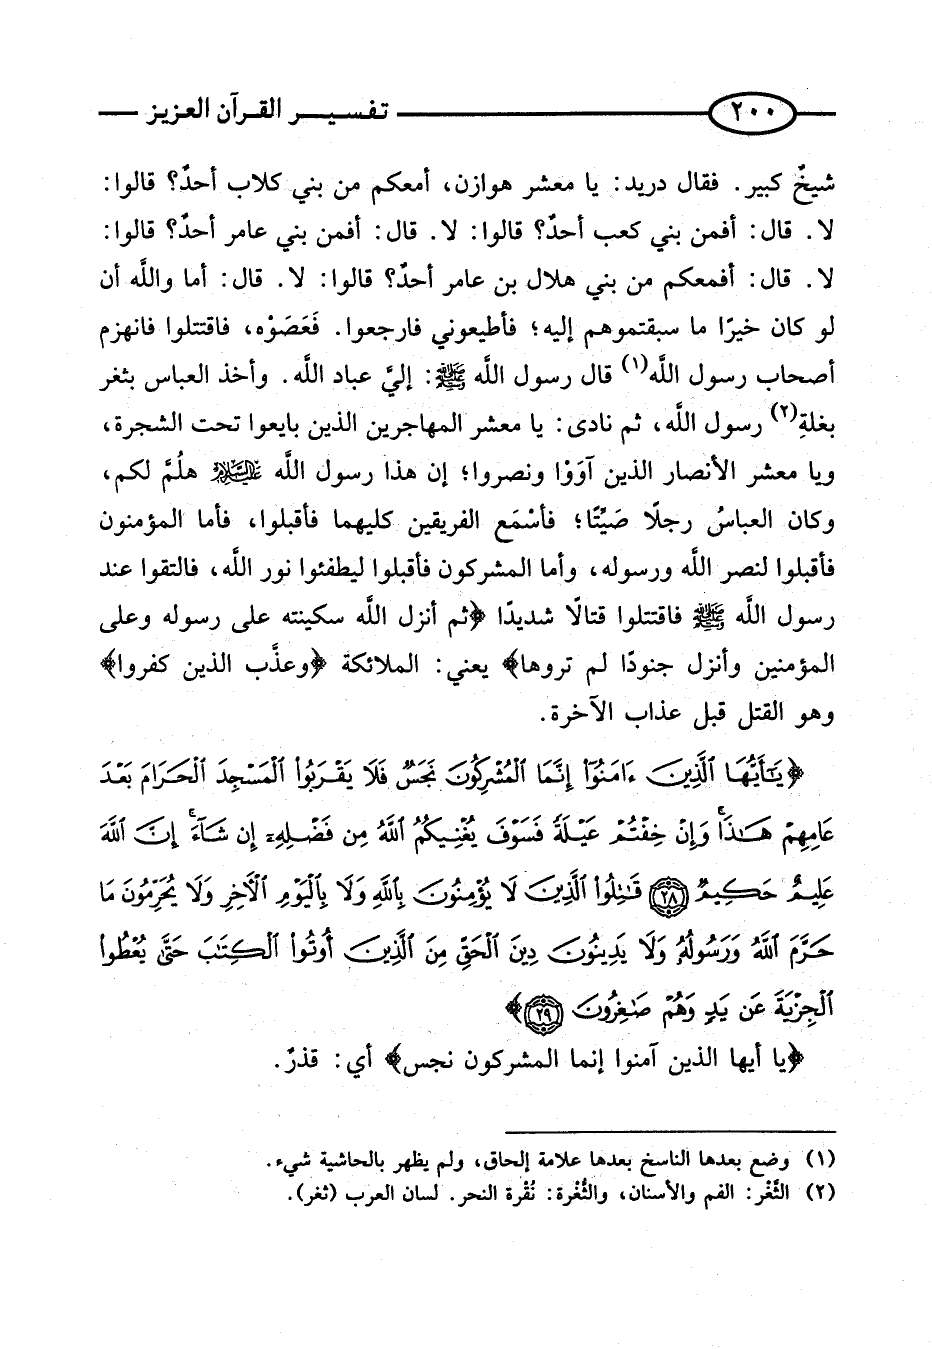 ٢٠٠ تفسير القرآن العزيز
شيخٌ كبير. فقال دريد: يا معشر هوازن، أمعكم من بني كلاب أحدٌ؟ قالوا:
لا. قال: أفمن بني كعب أحدٌ؟ قالوا: لا. قال: أفمن بني عامر أحدٌ؟ قالوا:
لا. قال: أفمعكم من بني هلال بن عامر أحدٌ؟ قالوا: لا. قال: أما واللَّه أن
لو كان خيرًا ما سبقتموهم إليه؛ فأطيعوني فارجعوا. فَعَصَوْه، فاقتتلوا فانهزم
أصحاب رسول اللَّه(١) قال رسول اللَّه ﷺ: إليَّ عباد اللَّه. وأخذ العباس بثغر
بغلةِ(٢) رسول اللَّه، ثم نادى: يا معشر المهاجرين الذين بايعوا تحت الشجرة،
ويا معشر الأنصار الذين آوَوْا ونصروا؛ إن هذا رسول اللَّه عليه السلام هلُمَّ لكم،
وكان العباسُ رجلًا صَيِّتًا؛ فأسْمَع الفريقين كليهما فأقبلوا، فأما المؤمنون
فأقبلوا لنصر اللَّه ورسوله، وأما المشركون فأقبلوا ليطفئوا نور اللَّه، فالتقوا عند
رسول اللَّه ﷺ فاقتتلوا قتالًا شديدًا ﴿ثم أنزل اللَّه سكينته على رسوله وعلى
المؤمنين وأنزل جنودًا لم تروها﴾ يعني: الملائكة ﴿وعذَّب الذين كفروا﴾
وهو القتل قبل عذاب الآخرة.
﴿يَٰٓأَيُّهَا ٱلَّذِينَ ءَامَنُوٓا۟ إِنَّمَا ٱلْمُشْرِكُونَ نَجَسٌ فَلَا يَقْرَبُوا۟ ٱلْمَسْجِدَ ٱلْحَرَامَ بَعْدَ
عَامِهِمْ هَٰذَا ۚ وَإِنْ خِفْتُمْ عَيْلَةً فَسَوْفَ يُغْنِيكُمُ ٱللَّهُ مِن فَضْلِهِۦٓ إِن شَآءَ ۚ إِنَّ ٱللَّهَ
عَلِيمٌ حَكِيمٌ ٢٨ قَٰتِلُوا۟ ٱلَّذِينَ لَا يُؤْمِنُونَ بِٱللَّهِ وَلَا بِٱلْيَوْمِ ٱلْءَاخِرِ وَلَا يُحَرِّمُونَ مَا
حَرَّمَ ٱللَّهُ وَرَسُولُهُۥ وَلَا يَدِينُونَ دِينَ ٱلْحَقِّ مِنَ ٱلَّذِينَ أُوتُوا۟ ٱلْكِتَٰبَ حَتَّىٰ يُعْطُوا۟
ٱلْجِزْيَةَ عَن يَدٍ وَهُمْ صَٰغِرُونَ ٢٩﴾
﴿يا أيها الذين آمنوا إنما المشركون نجس﴾ أي: قذرٌ.
(١) وضع بعدها الناسخ بعدها علامة إلحاق، ولم يظهر بالحاشية شيء.
(٢) الثَّغْر: الفم والأسنان، والثُّغْرة: نُقْرة النحر. لسان العرب (ثغر).